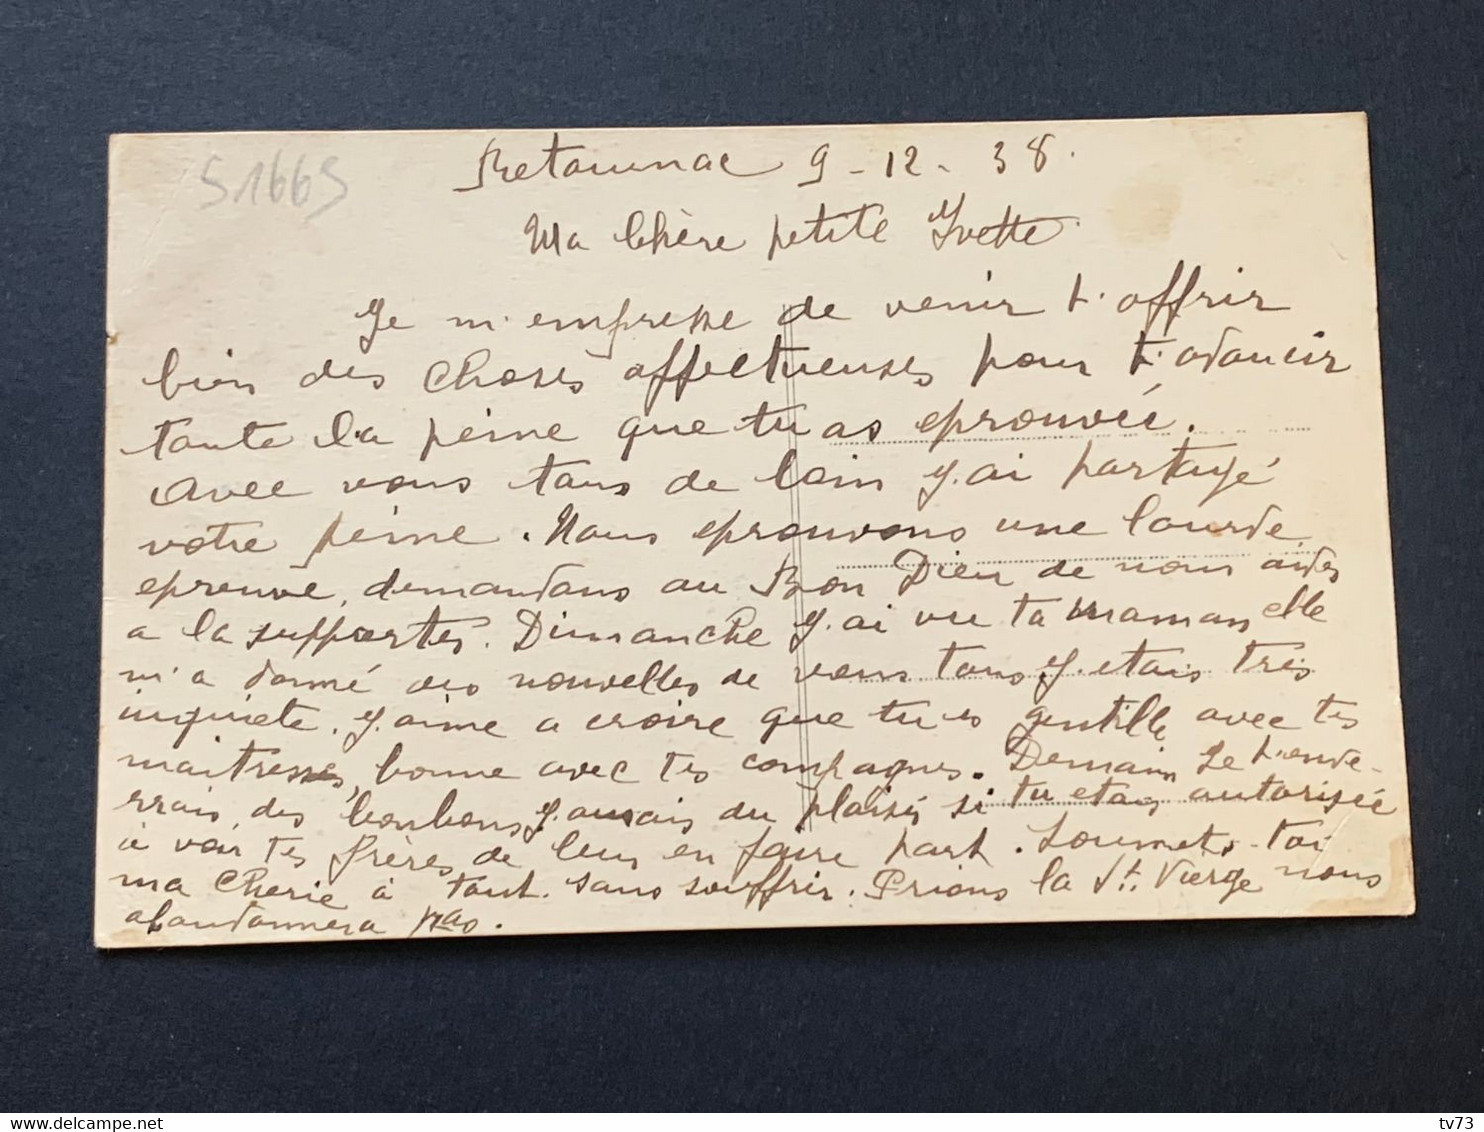 S1665
Retournac 9-12-38.
Ma Chère petite Yvette.
Je m'empresse de venir t'offrir
bien des choses affectueuses pour t'adoucir
toute la peine que tu as eprouvée.
Avec vous tous de loin J'ai partagé
votre peine. Nous eprouvons une lourde
epreuve, demandons au Bon Dieu de nous aider
a la supporter. Dimanche J'ai vu ta maman elle
m'a donné des nouvelles de vous tous J'etais très
inquiete. J'aime a croire que tu es gentille avec tes
maitresses, bonne avec tes compagnes. Demain Je t'enve-
rrais des bonbons J'aurais du plaisir si tu etais autorisée
à voir tes frères de leur en faire part. Soumets-toi
ma Cherie à tout sans souffrir. Prions la Ste Vierge nous
abandonnera pas.
tv73